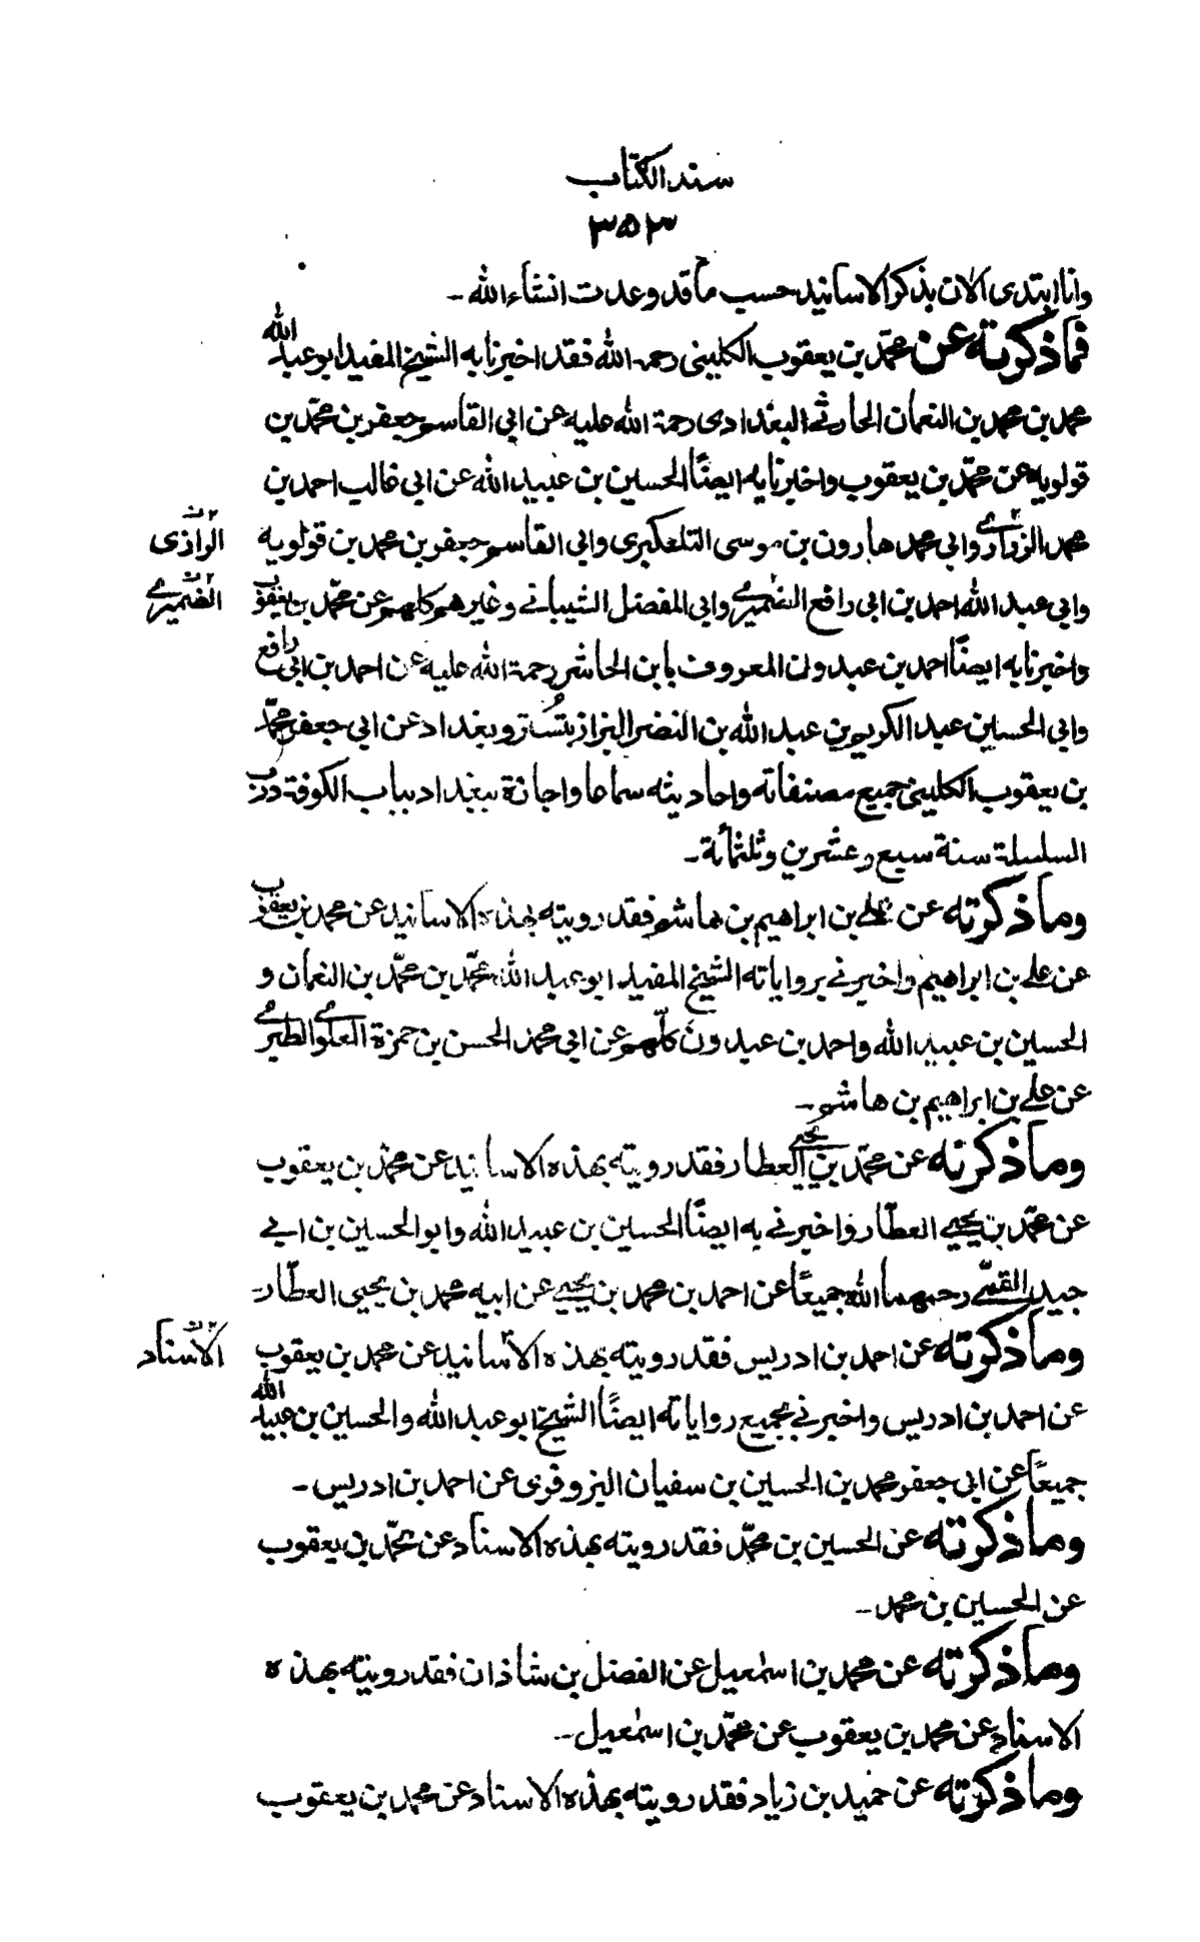 سند الكتاب
٣٥٣
وانا ابتدى الان بذكر الاسانيد حسب ما قد وعدت انشاء الله -
فما ذكرته عن محمّد بن يعقوب الكلينى رحمه الله فقد اخبرنا به الشيخ المفيد ابو عبد الله
محمد بن محمد بن النعمان الحارثى البغدادى رحمة الله عليه عن ابى القاسم جعفر بن محمّد بن
قولويه عن محمّد بن يعقوب واخبرنا به ايضًا الحسين بن عبيد الله عن ابى غالب احمد بن
محمد الزرارے وابى محمد هارون بن موسى التلعكبرى وابى القاسم جعفر بن محمد بن قولويه
الرازى
وابى عبد الله احمد بن ابى رافع الضميرے وابى المفضل الشيبانے وغيرهم كلهم عن محمّد بن يعقوب
الضميرے
واخبرنا به ايضًا احمد بن عبدون المعروف بابن الحاشر رحمة الله عليه عن احمد بن ابى رافع
وابى الحسين عبد الكريم بن عبد الله بن النضر البزاز بتُستر وبغداد عن ابى جعفر محمّد
بن يعقوب الكلينى جميع مصنفاته واحاديثه سماعا واجازة ببغداد بباب الكوفة درب
السلسلة سنة سبع وعشرين وثلثمائة -
وما ذكرته عن على بن ابراهيم بن هاشم فقد رويته بهذه الاسانيد عن محمد بن يعقوب
عن على بن ابراهيم واخبرنے برواياته الشيخ المفيد ابو عبد الله محمّد بن محمّد بن النعمان و
الحسين بن عبيد الله واحمد بن عبدون كلّهم عن ابى محمد الحسن بن حمزة العلوے الطبرے
عن على بن ابراهيم بن هاشم -
وما ذكرته عن محمّد بن يحيے العطار فقد رويته بهذه الاسانيد عن محمد بن يعقوب
عن محمّد بن يحيے العطّار واخبرنے به ايضًا الحسين بن عبيد الله وابو الحسين بن ابے
جيد القمّے رحمهما الله جميعًا عن احمد بن محمد بن يحيے عن ابيه محمد بن يحيى العطّار -
وما ذكرته عن احمد بن ادريس فقد رويته بهذه الأسانيد عن محمد بن يعقوب
الاسناد
عن احمد بن ادريس واخبرنے بجميع رواياته ايضًا الشيخ ابو عبد الله والحسين بن عبيد الله
جميعًا عن ابى جعفر محمد بن الحسين بن سفيان البزوفرى عن احمد بن ادريس -
وما ذكرته عن الحسين بن محمّد فقد رويته بهذه الاسناد عن محمّد بن يعقوب
عن الحسين بن محمد -
وما ذكرته عن محمد بن اسمٰعيل عن الفضل بن شاذان فقد رويته بهذه
الاسناد عن محمد بن يعقوب عن محمّد بن اسمٰعيل -
وما ذكرته عن حميد بن زياد فقد رويته بهذه الاسناد عن محمد بن يعقوب